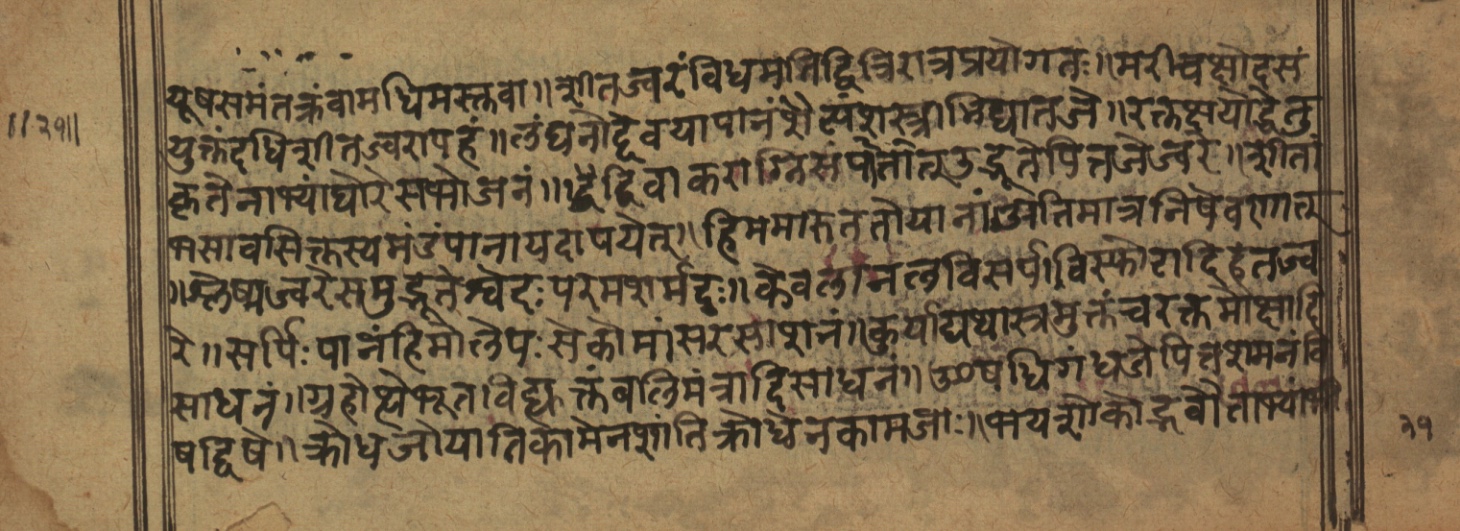 यूषसमंतक्रंवामथिमस्तवा॥ शीतज्वरंविधमंमिद्वित्रिरात्रप्रयोगतः॥ मरीचक्षौद्रसं
॥२१॥ युक्तंदधिशीतज्वरापहं॥ लंघनोद्देवयापानंशैत्यंशस्त्राभिघातजे॥ रक्तक्षयोद्देतु
कृतेनाभ्यांघोरेसभोजनं॥ द्दैद्दिवाकराग्निसंपातात्उद्भूतेपित्तजेज्वरे॥ शीतां
भसावसिक्तस्यमंडंपानायदापयेत्॥ हिममारुततोयानांअतिमात्रनिषेवणात्
॥ श्लेष्मज्वरेसमुद्भूतेस्वेदःपरमशर्मदः॥ केवलानलविसर्पविस्फोटादिहतज्व
रे॥ सर्पिःपानंहिमोलेपःसेकोमांसरसाशनं॥ कुर्याद्यथास्त्रमुक्तंचरक्तमोक्षादि
साधनं॥ ग्रहोत्थेभूतविद्यक्तंबलिमंत्रादिसाधनं॥ ओषधिगंधजेपित्तशमनंवि
षद्विषे॥ क्रोधजोयातिकामेनशांतिक्रोधेनकामजाः॥ भयशोकोद्भवौताभ्यांभी
२१